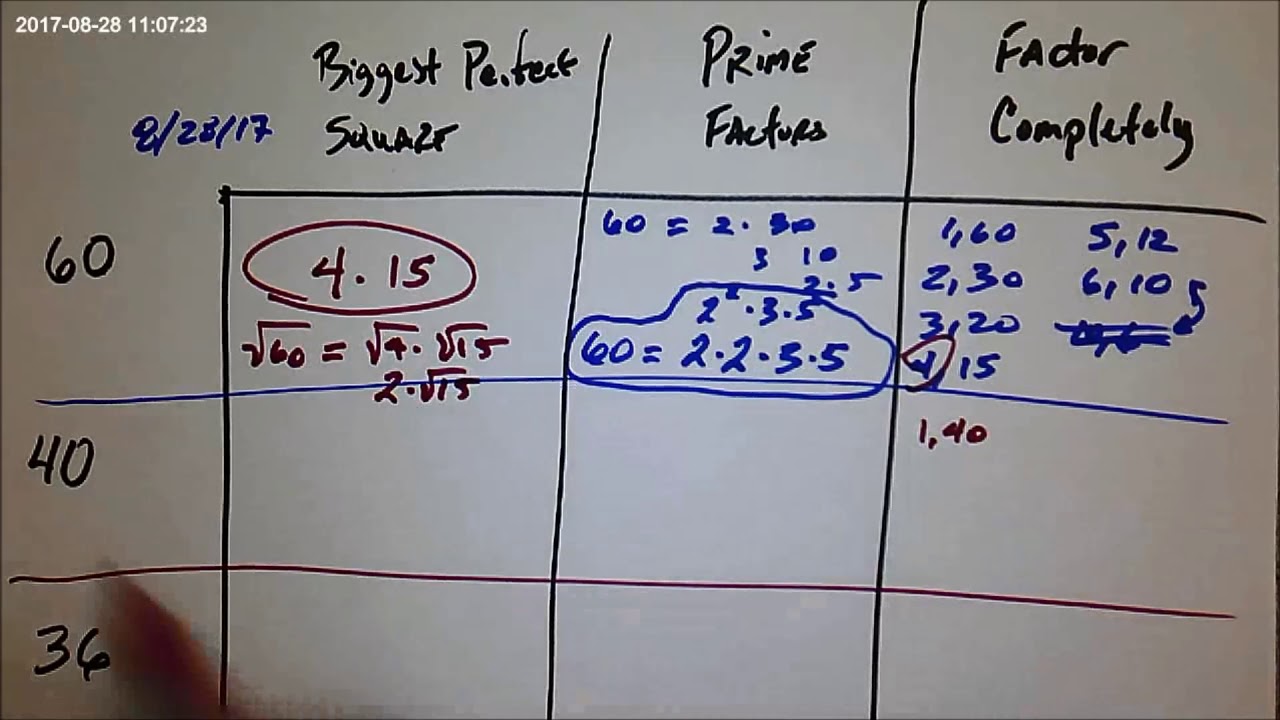 2017-08-28 11:07:23
8/28/17
Biggest Perfect
Square
Prime
Factors
Factor
Completely
60
4 · 15
√60 = √4 · √15
2 · √15
60 = 2 · 30
3 10
2 · 5
2² · 3 · 5
60 = 2 · 2 · 3 · 5
1,60
2,30
3,20
4,15
5,12
6,10
40
1,40
36